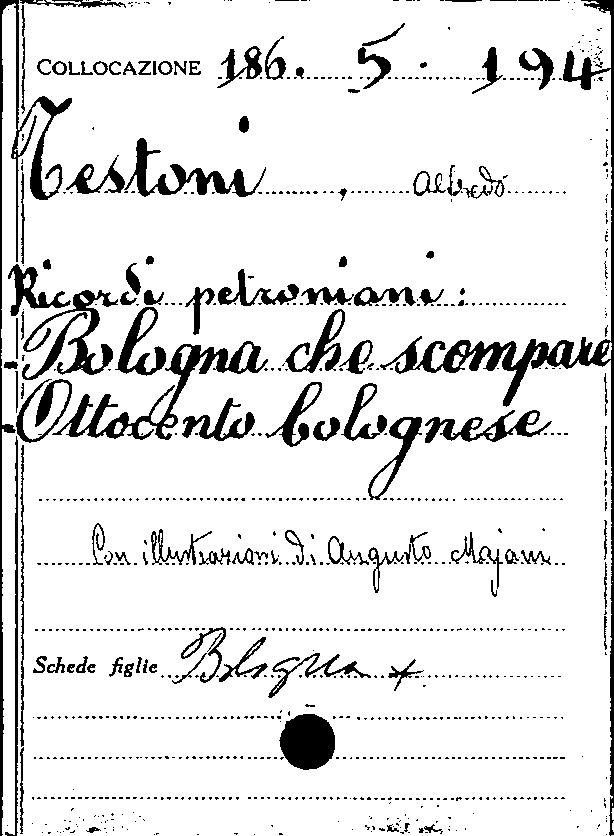 COLLOCAZIONE 186. 5. 194
Testoni, Alfredo
Ricordi petroniani:
-Bologna che scompare
-Ottocento bolognese
Con illustrazioni di Augusto Majani
Schede figlie Bologna +